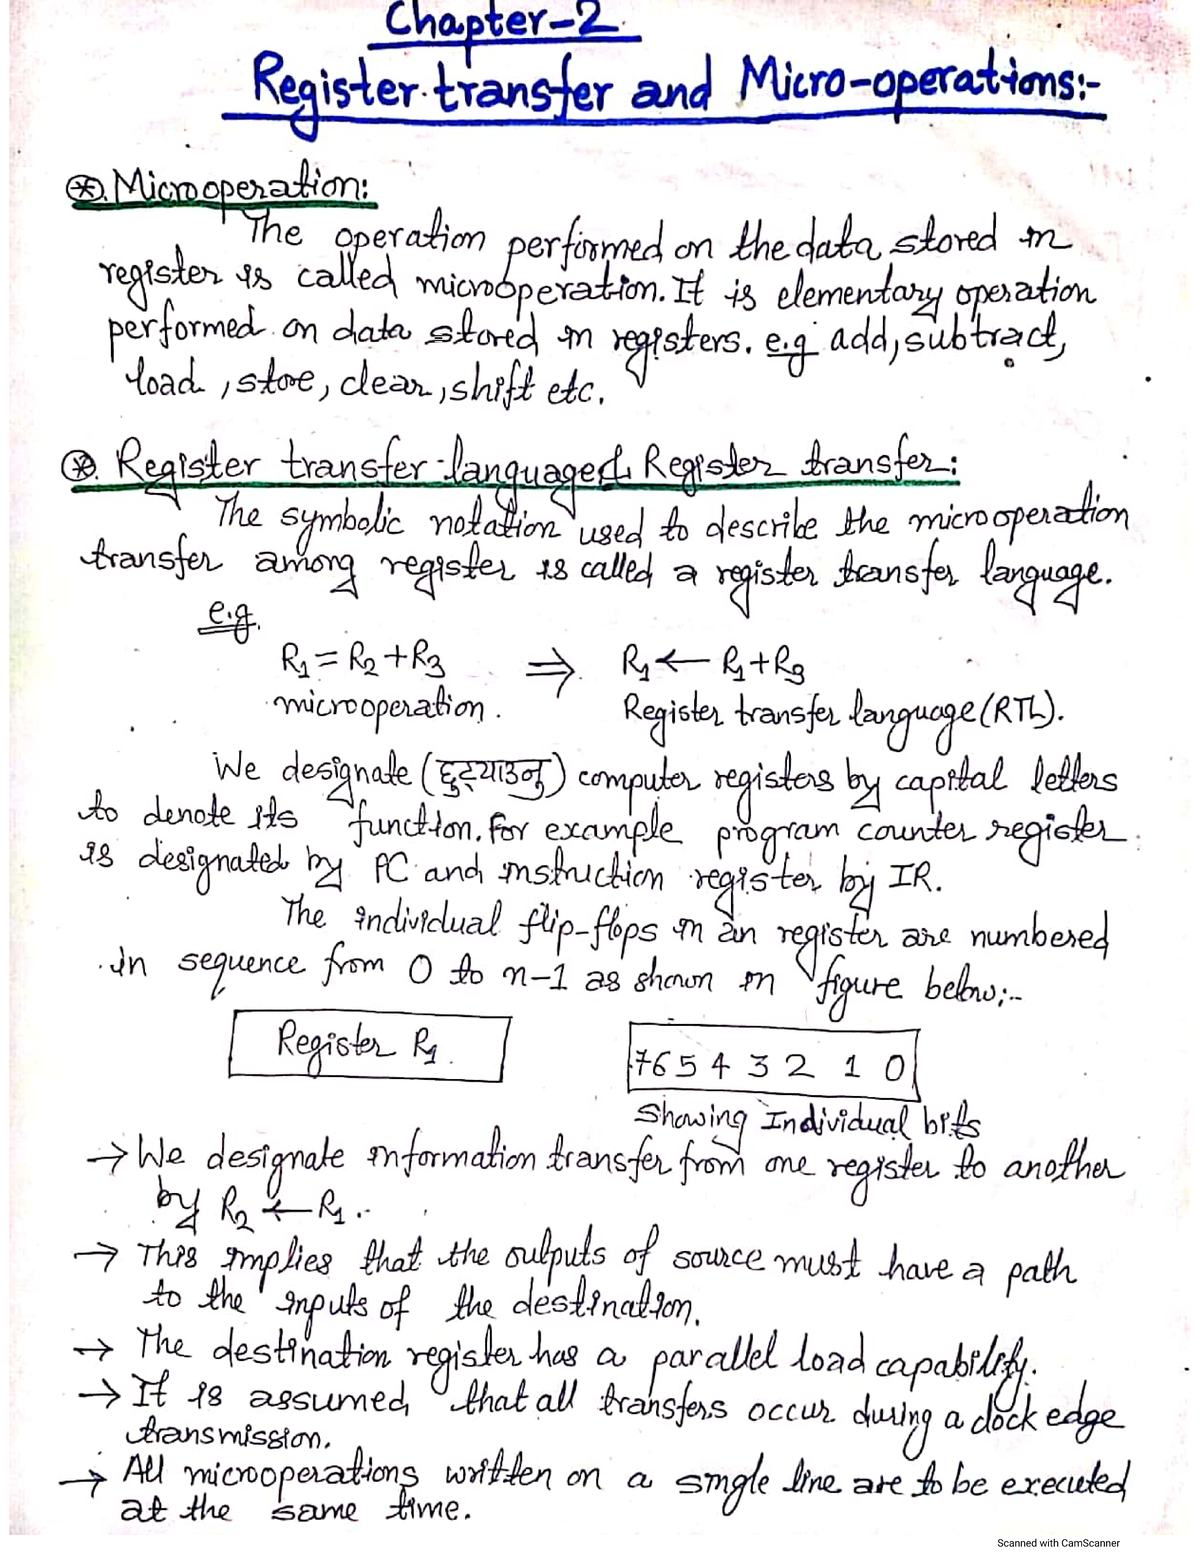 Chapter-2
Register transfer and Micro-operations:-
⊛. Microoperation:
The operation performed on the data stored in
register is called microoperation. It is elementary operation
performed on data stored in registers. e.g add, subtract,
load, store, clear, shift etc.
⊛. Register transfer language & Register transfer:
The symbolic notation used to describe the microoperation
transfer among register is called a register transfer language.
e.g.
R₁ = R₂ + R₃ ⇒ R₁ ← R₁ + R₃
microoperation. Register transfer language (RTL).
We designate (छुट्याउनु) computer registers by capital letters
to denote its function. For example program counter register
is designated by PC and instruction register by IR.
The individual flip-flops in an register are numbered
in sequence from 0 to n-1 as shown in figure below:-
Register R₁ 7 6 5 4 3 2 1 0
Showing Individual bits
→ We designate information transfer from one register to another
by R₂ ← R₁.
→ This implies that the outputs of source must have a path
to the inputs of the destination.
→ The destination register has a parallel load capability.
→ It is assumed that all transfers occur during a clock edge
transmission.
→ All microoperations written on a single line are to be executed
at the same time.
Scanned with CamScanner